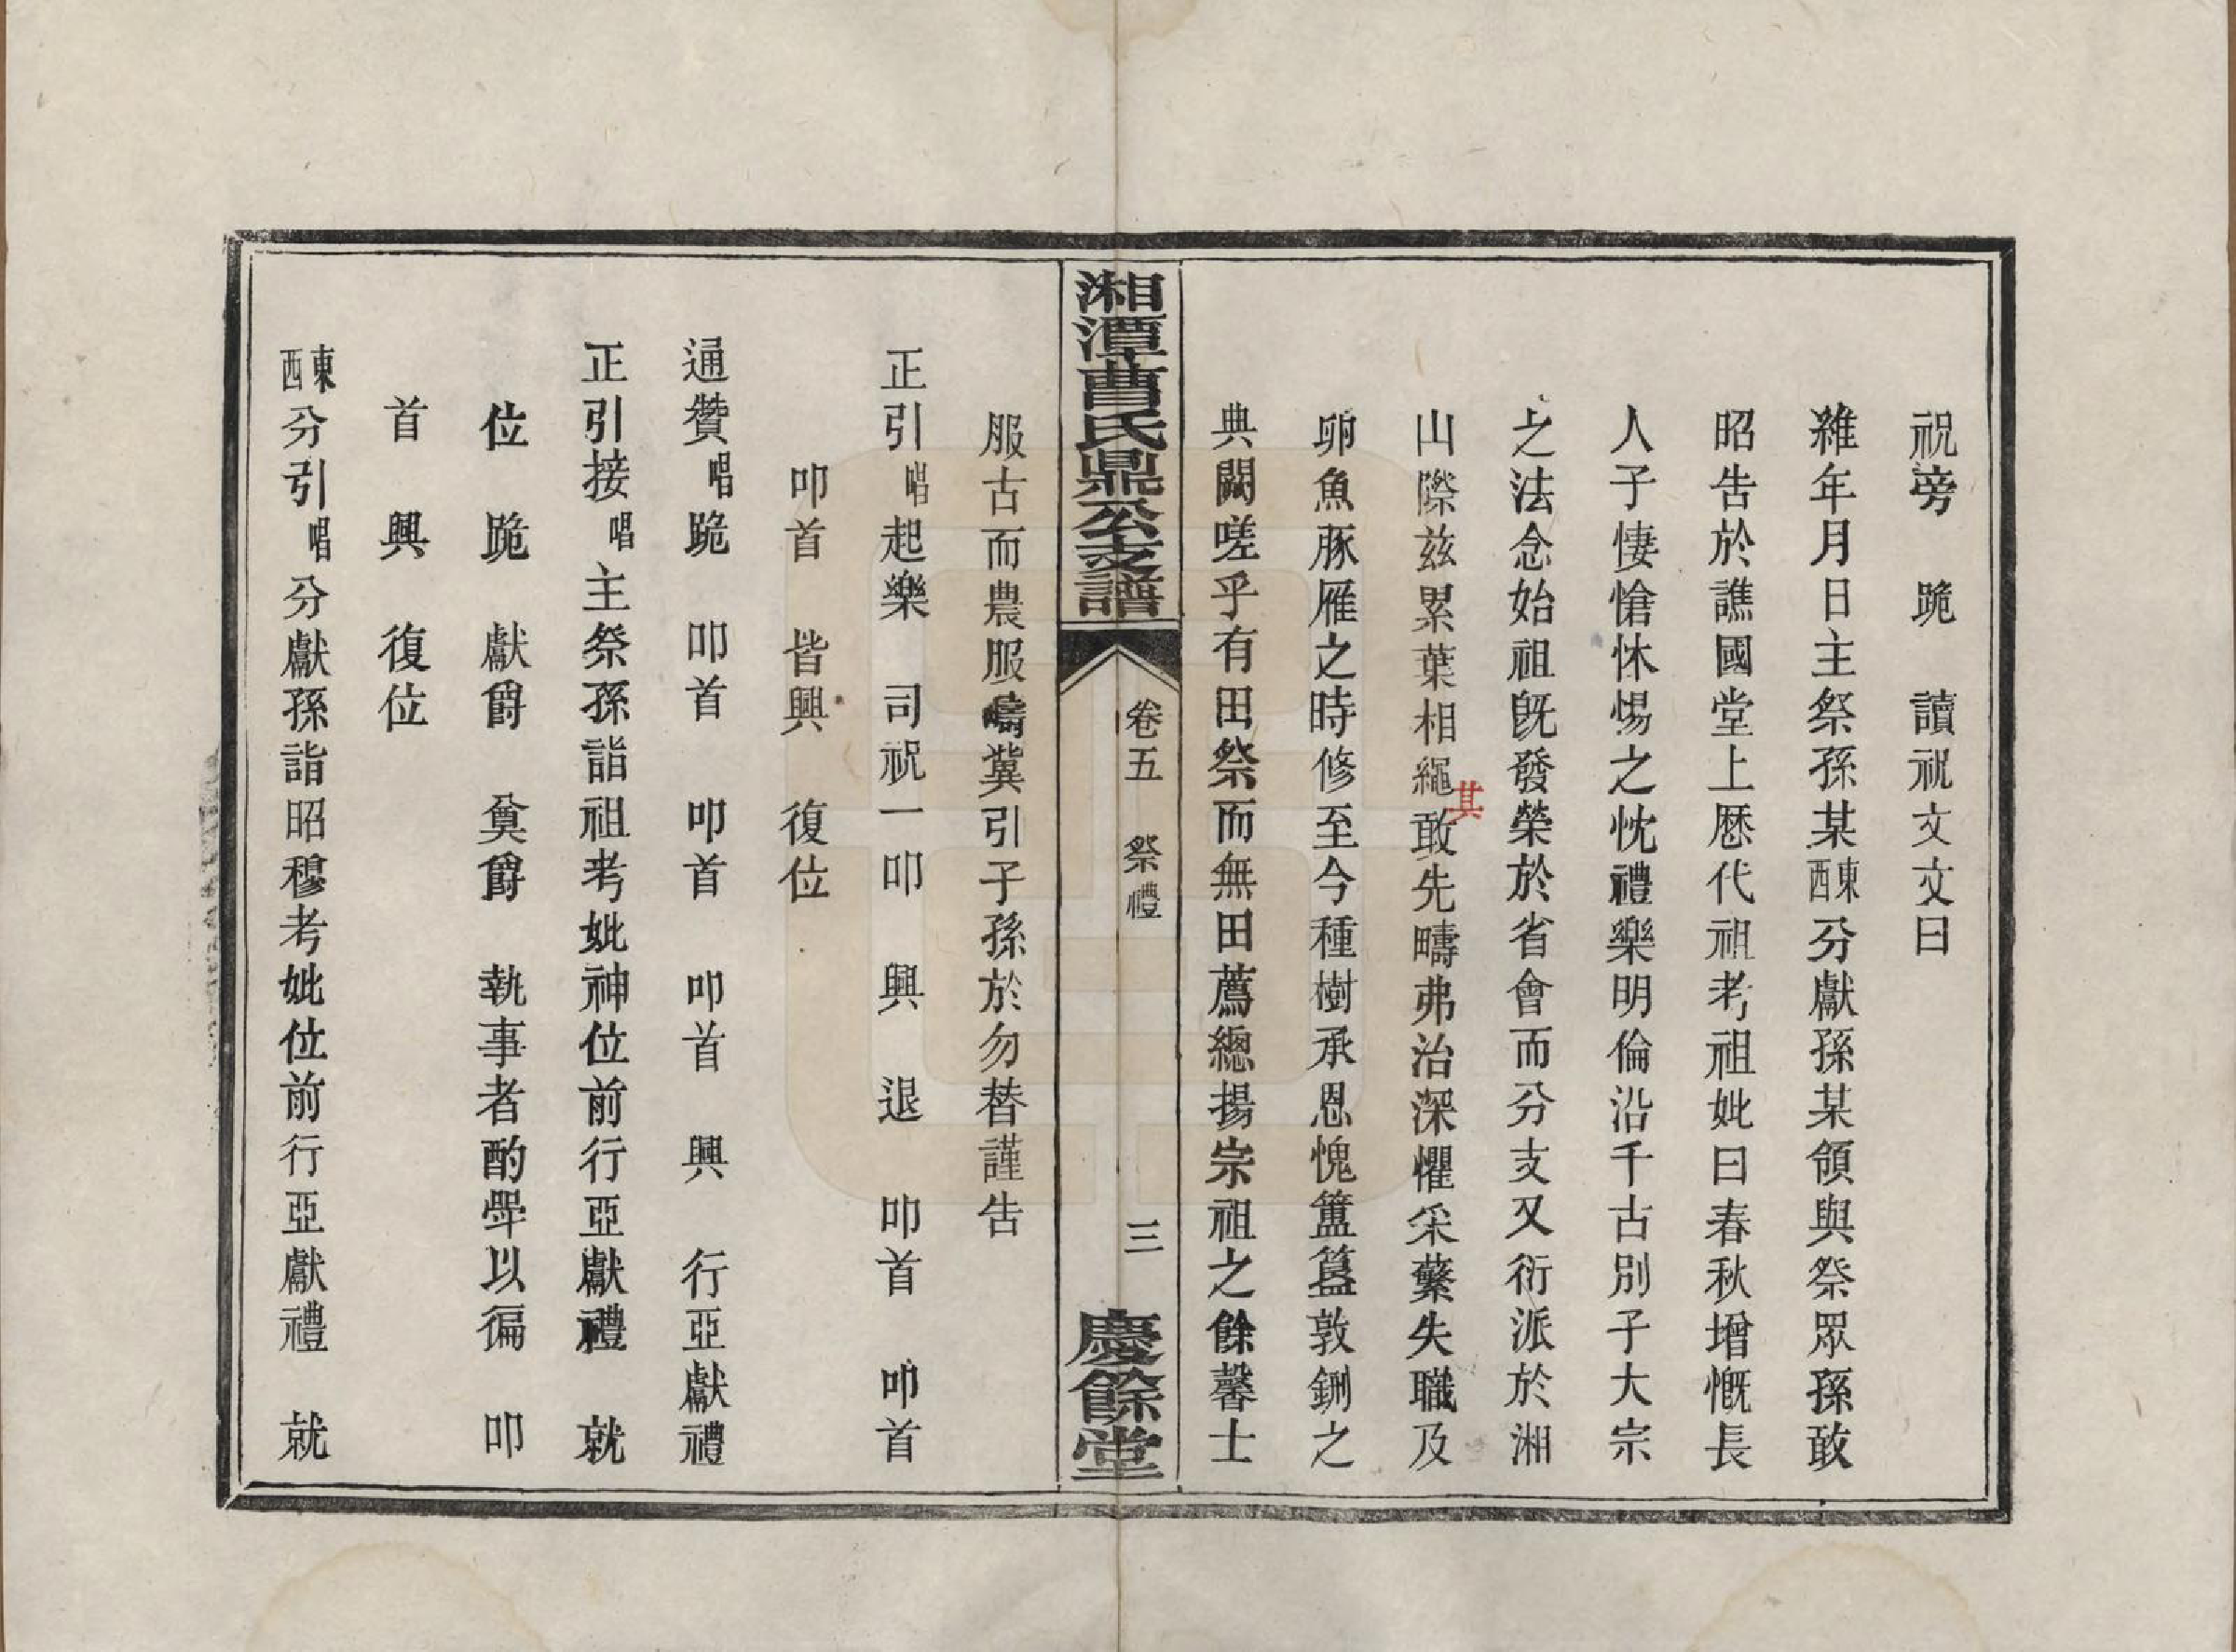 祝旁　跪　讀祝文文曰
維年月日主祭孫某東西分獻孫某領與祭眾孫敢
昭告於譙國堂上歷代祖考祖妣曰春秋增慨長
人子悽愴怵惕之忱禮樂明倫沿千古別子大宗
之法念始祖旣發榮於省會而分支又衍派於湘
山際兹累葉相繩其敢先疇弗治深懼采蘩失職及
卵魚豚雁之時修至今種樹承恩愧簠簋敦鉶之
典闕嗟乎有田祭而無田薦總揚宗祖之餘馨士
湘潭曹氏鼎公支譜
卷五　祭禮　三
慶餘堂
服古而農服疇冀引子孫於勿替謹告
正引唱起樂　司祝一叩　興　退　叩首　叩首
叩首　皆興　復位
通贊唱跪　叩首　叩首　叩首　興　行亞獻禮
正引接唱主祭孫詣祖考妣神位前行亞獻禮　就
位　跪　獻爵　奠爵　執事者酌斝以徧　叩
首　興　復位
東西分引唱分獻孫詣昭穆考妣位前行亞獻禮　就